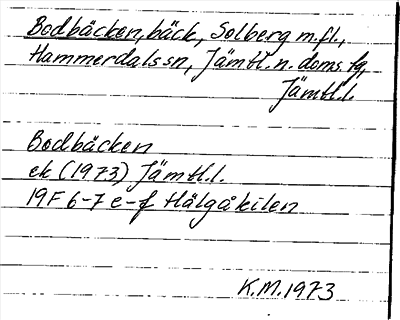 Bodbäcken, bäck, Solberg m.fl.,
Hammerdals sn, Jämtl. n. doms tg,
Jämtl.l.
Bodbäcken
ek (1973) Jämtl.l.
19F 6-7 e-f Hälgåkilen
K.M. 1973